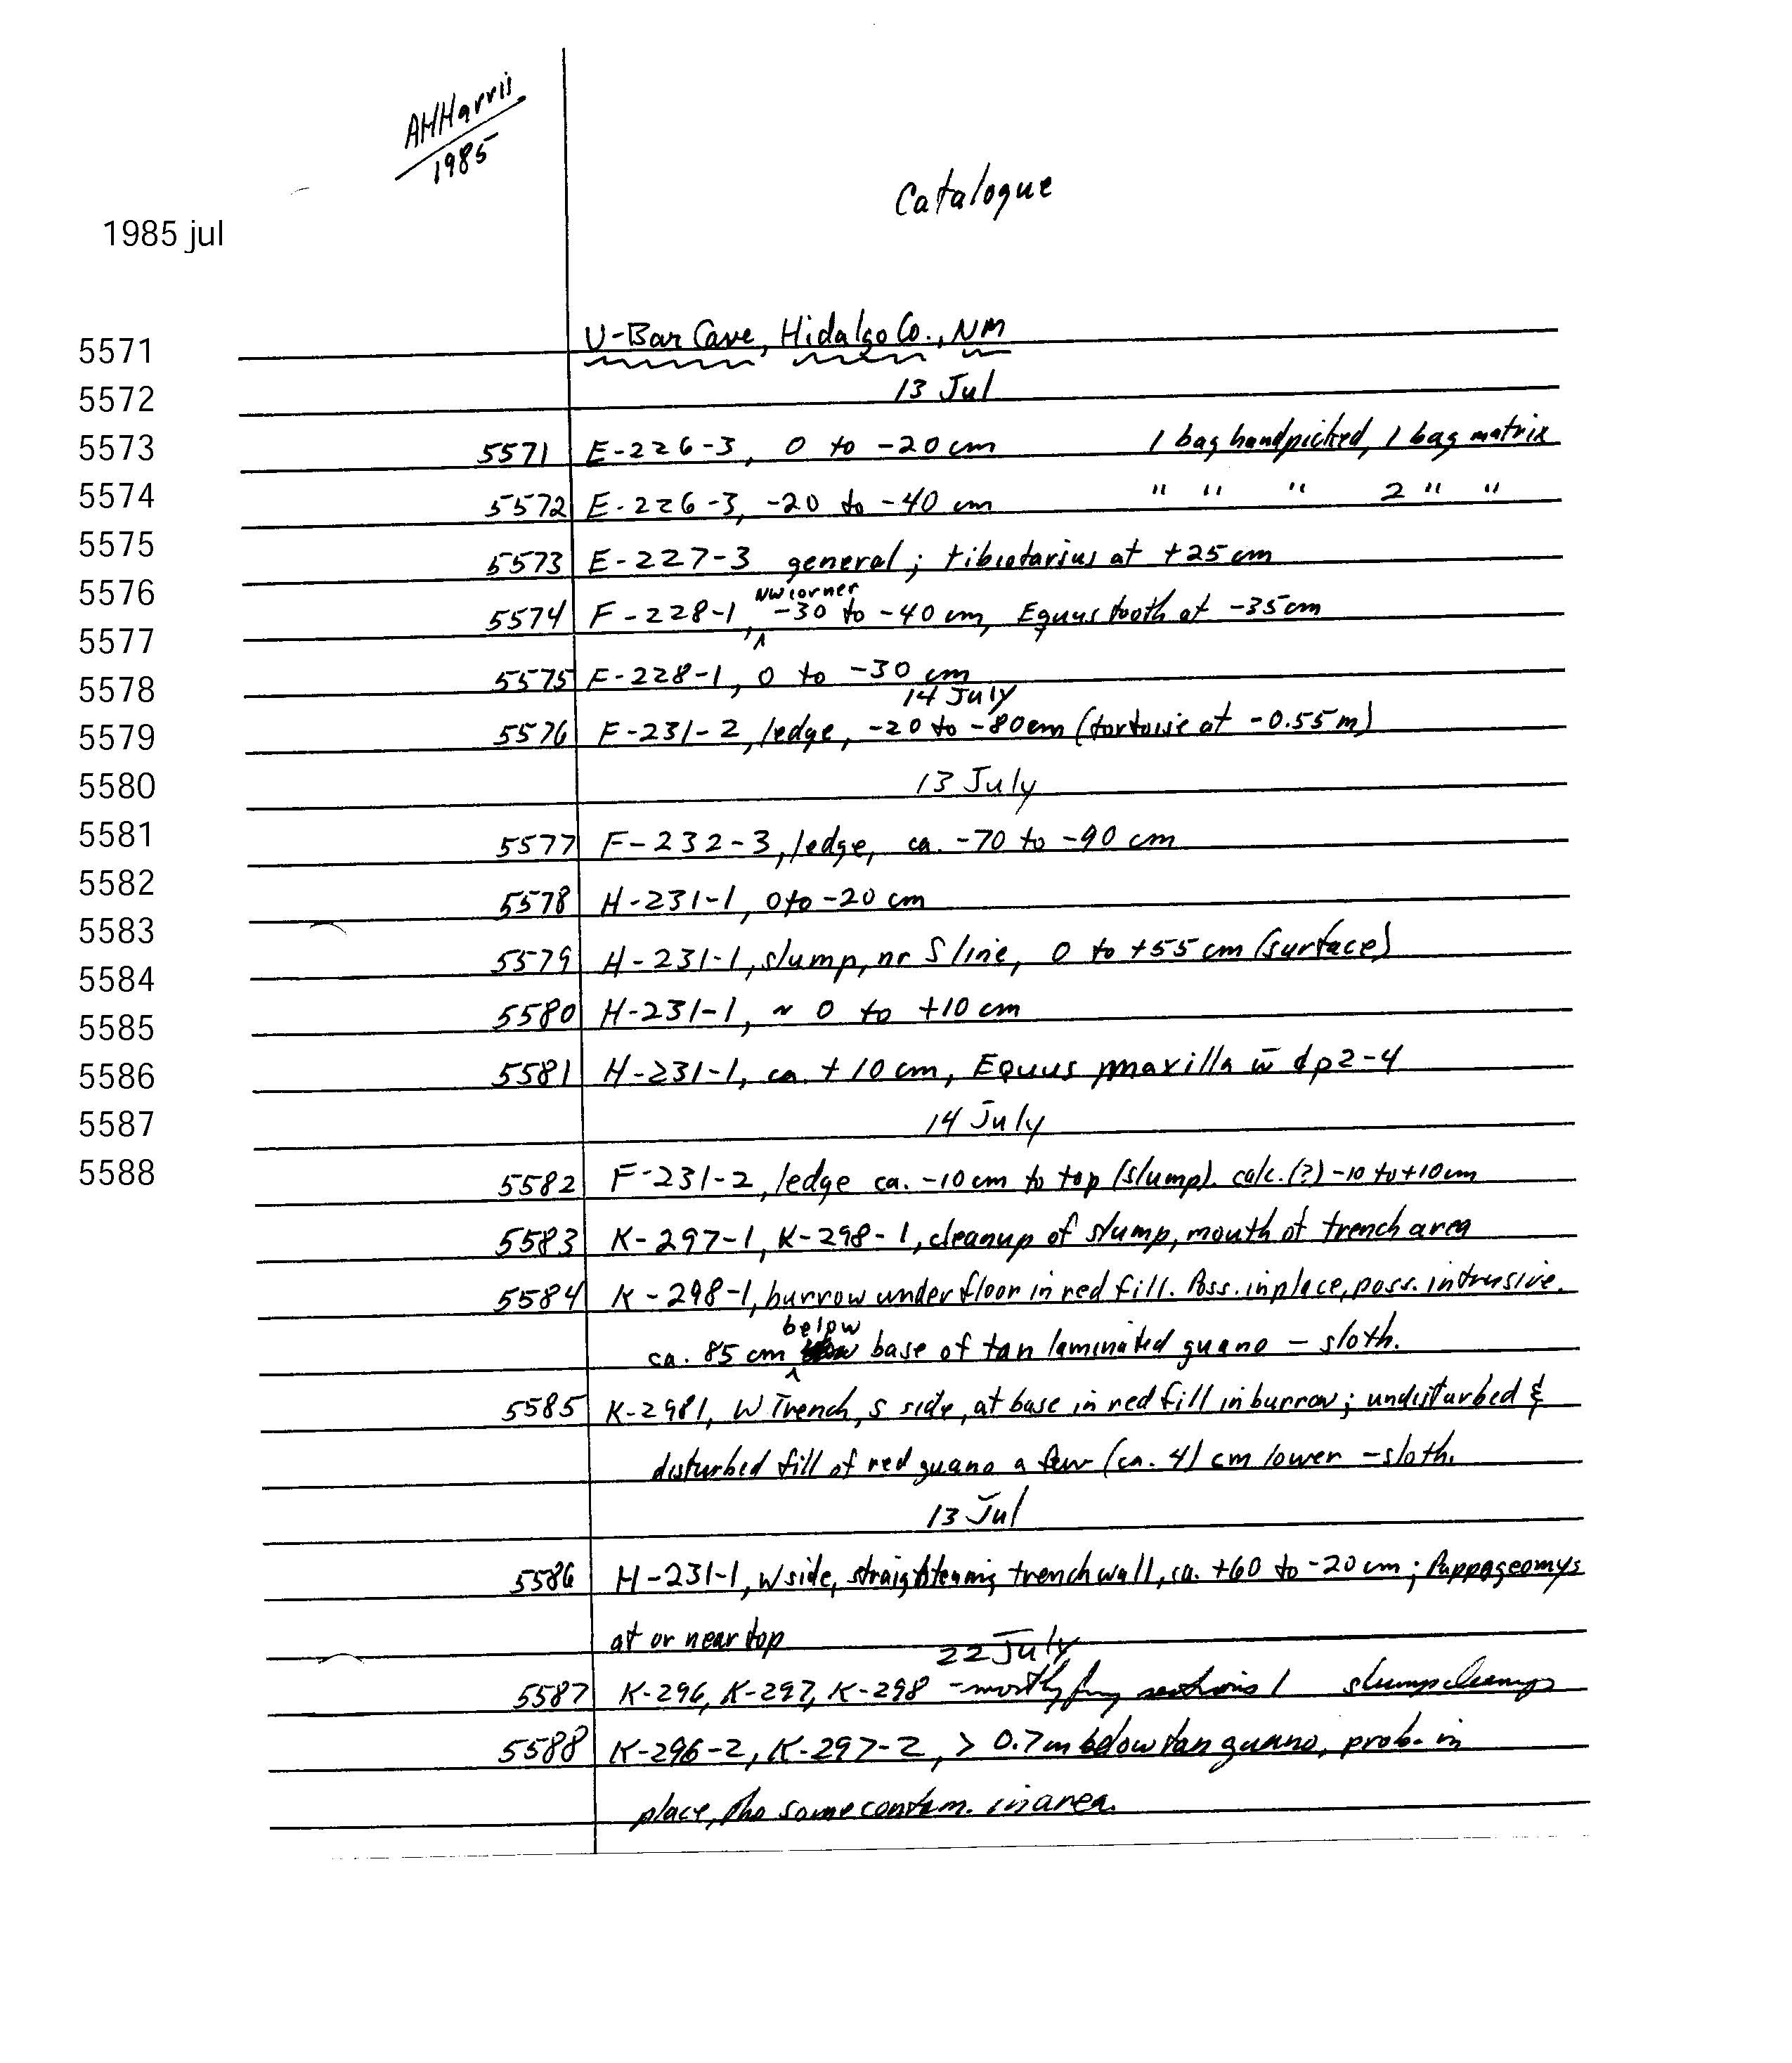 AHHarris
1985
Catalogue
1985 jul
5571
5572
5573
5574
5575
5576
5577
5578
5579
5580
5581
5582
5583
5584
5585
5586
5587
5588
U-Bar Cave, Hidalgo Co., NM
13 Jul
5571 E-226-3, 0 to -20 cm 1 bag handpicked, 1 bag matrix
5572 E-226-3, -20 to -40 cm " " " 2 " "
5573 E-227-3 general; tibiotarsus at +25 cm
NW corner
5574 F-228-1, ^ -30 to -40 cm, Equus tooth at -35cm
5575 F-228-1, 0 to -30 cm
14 July
5576 F-231-2, ledge, -20 to -80cm (tortoise at -0.55m)
13 July
5577 F-232-3, ledge, ca. -70 to -90 cm
5578 H-231-1, 0 to -20 cm
5579 H-231-1, slump, nr S line, 0 to +55 cm (surface)
5580 H-231-1, ~ 0 to +10 cm
5581 H-231-1, ca. +10 cm, Equus maxilla w̄ dp2-4
14 July
5582 F-231-2, ledge ca. -10cm to top (slump). calc. (?) -10 to +10cm
5583 K-297-1, K-298-1, cleanup of slump, mouth of trench area
5584 K-298-1, burrow under floor in red fill. Poss. in place, poss. intrusive.
below
ca. 85 cm ^ base of tan laminated guano - sloth.
5585 K-2981, W Trench, S side, at base in red fill in burrow; undisturbed &
disturbed fill of red guano a few (ca. 4) cm lower - sloth.
13 Jul
5586 H-231-1, W side, straightening trench wall, ca. +60 to -20 cm; Pappogeomys
at or near top
22 July
5587 K-296, K-297, K-298 - mostly sections 1 slump cleanup
5588 K-296-2, K-297-2, > 0.7m below tan guano, prob. in
place, tho some contam. in area.